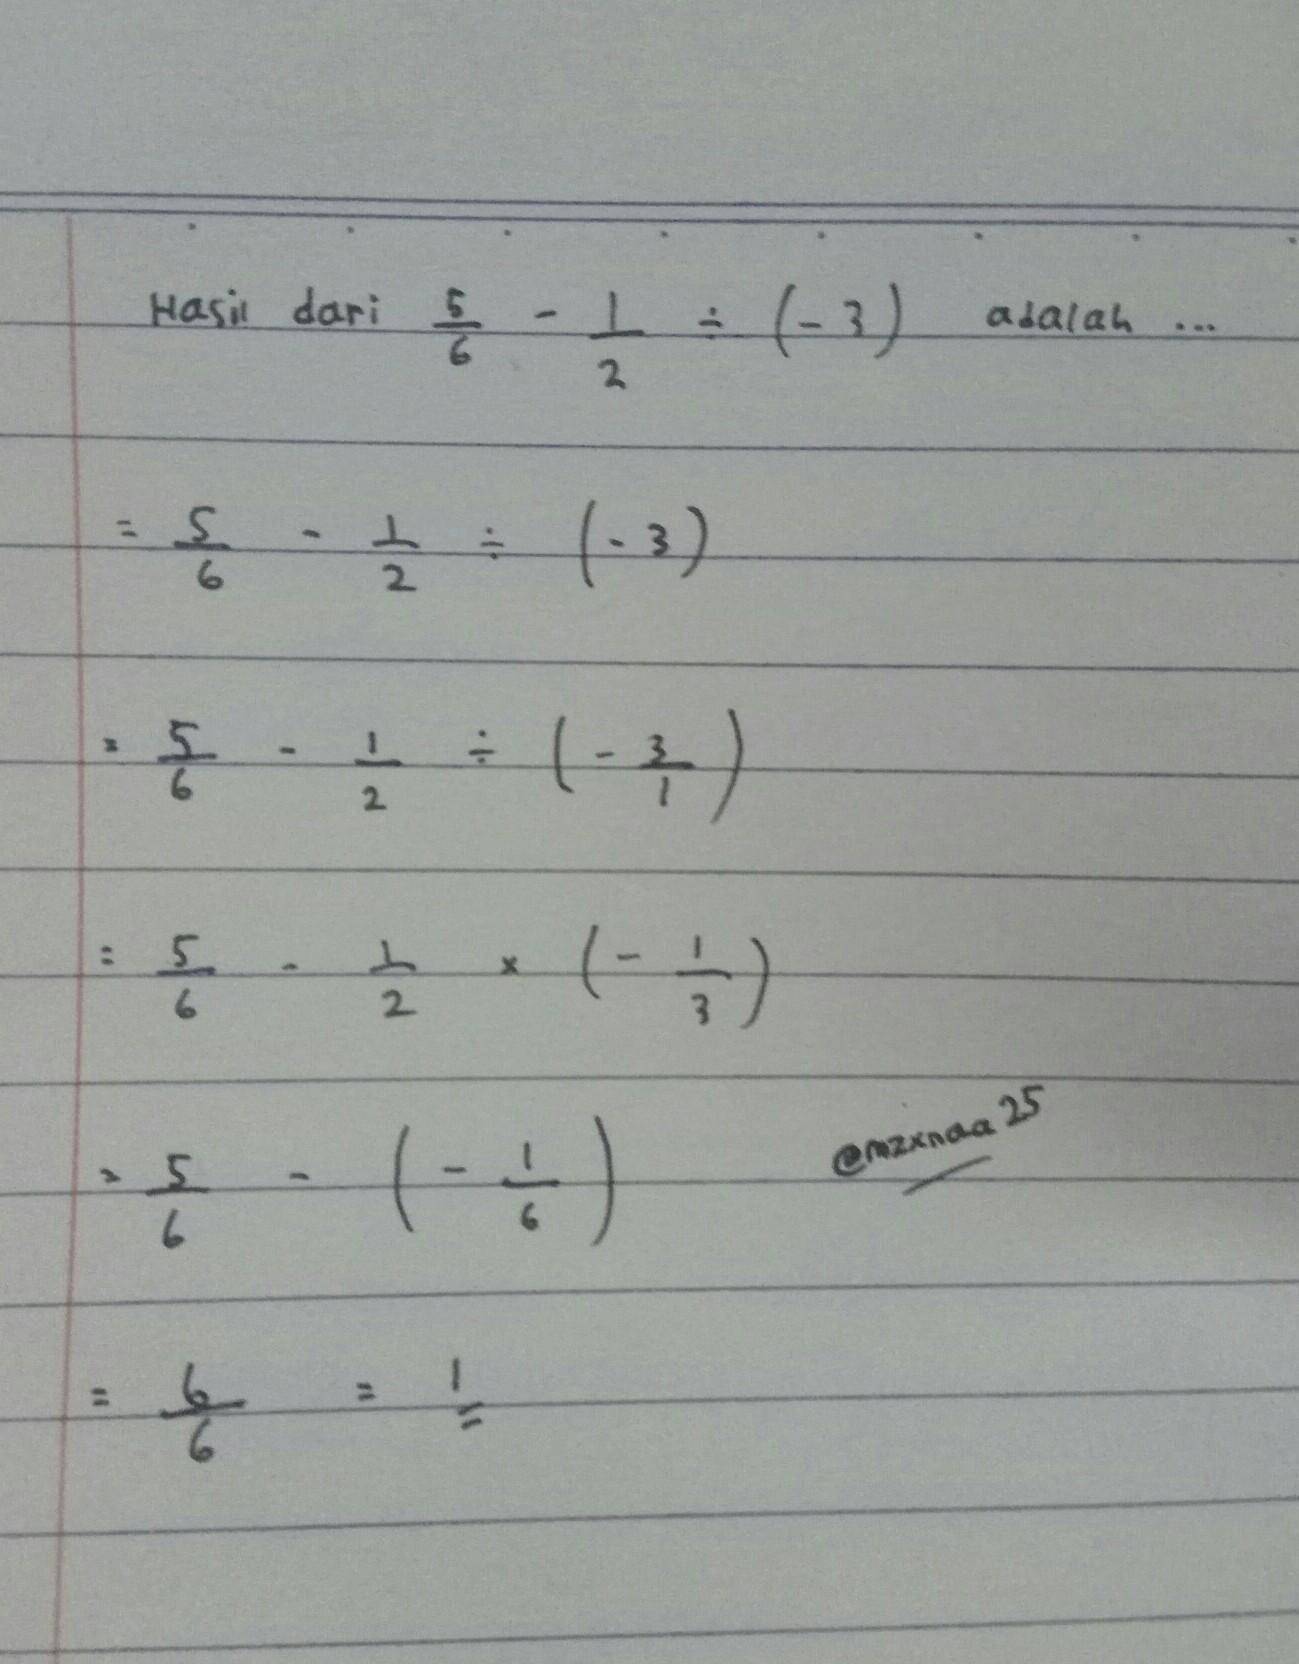 Hasil dari 5/6 - 1/2 ÷ (-3) adalah ...
= 5/6 - 1/2 ÷ (-3)
= 5/6 - 1/2 ÷ (-3/1)
= 5/6 - 1/2 × (-1/3)
= 5/6 - (-1/6)
@mzxnaa25
= 6/6 = 1